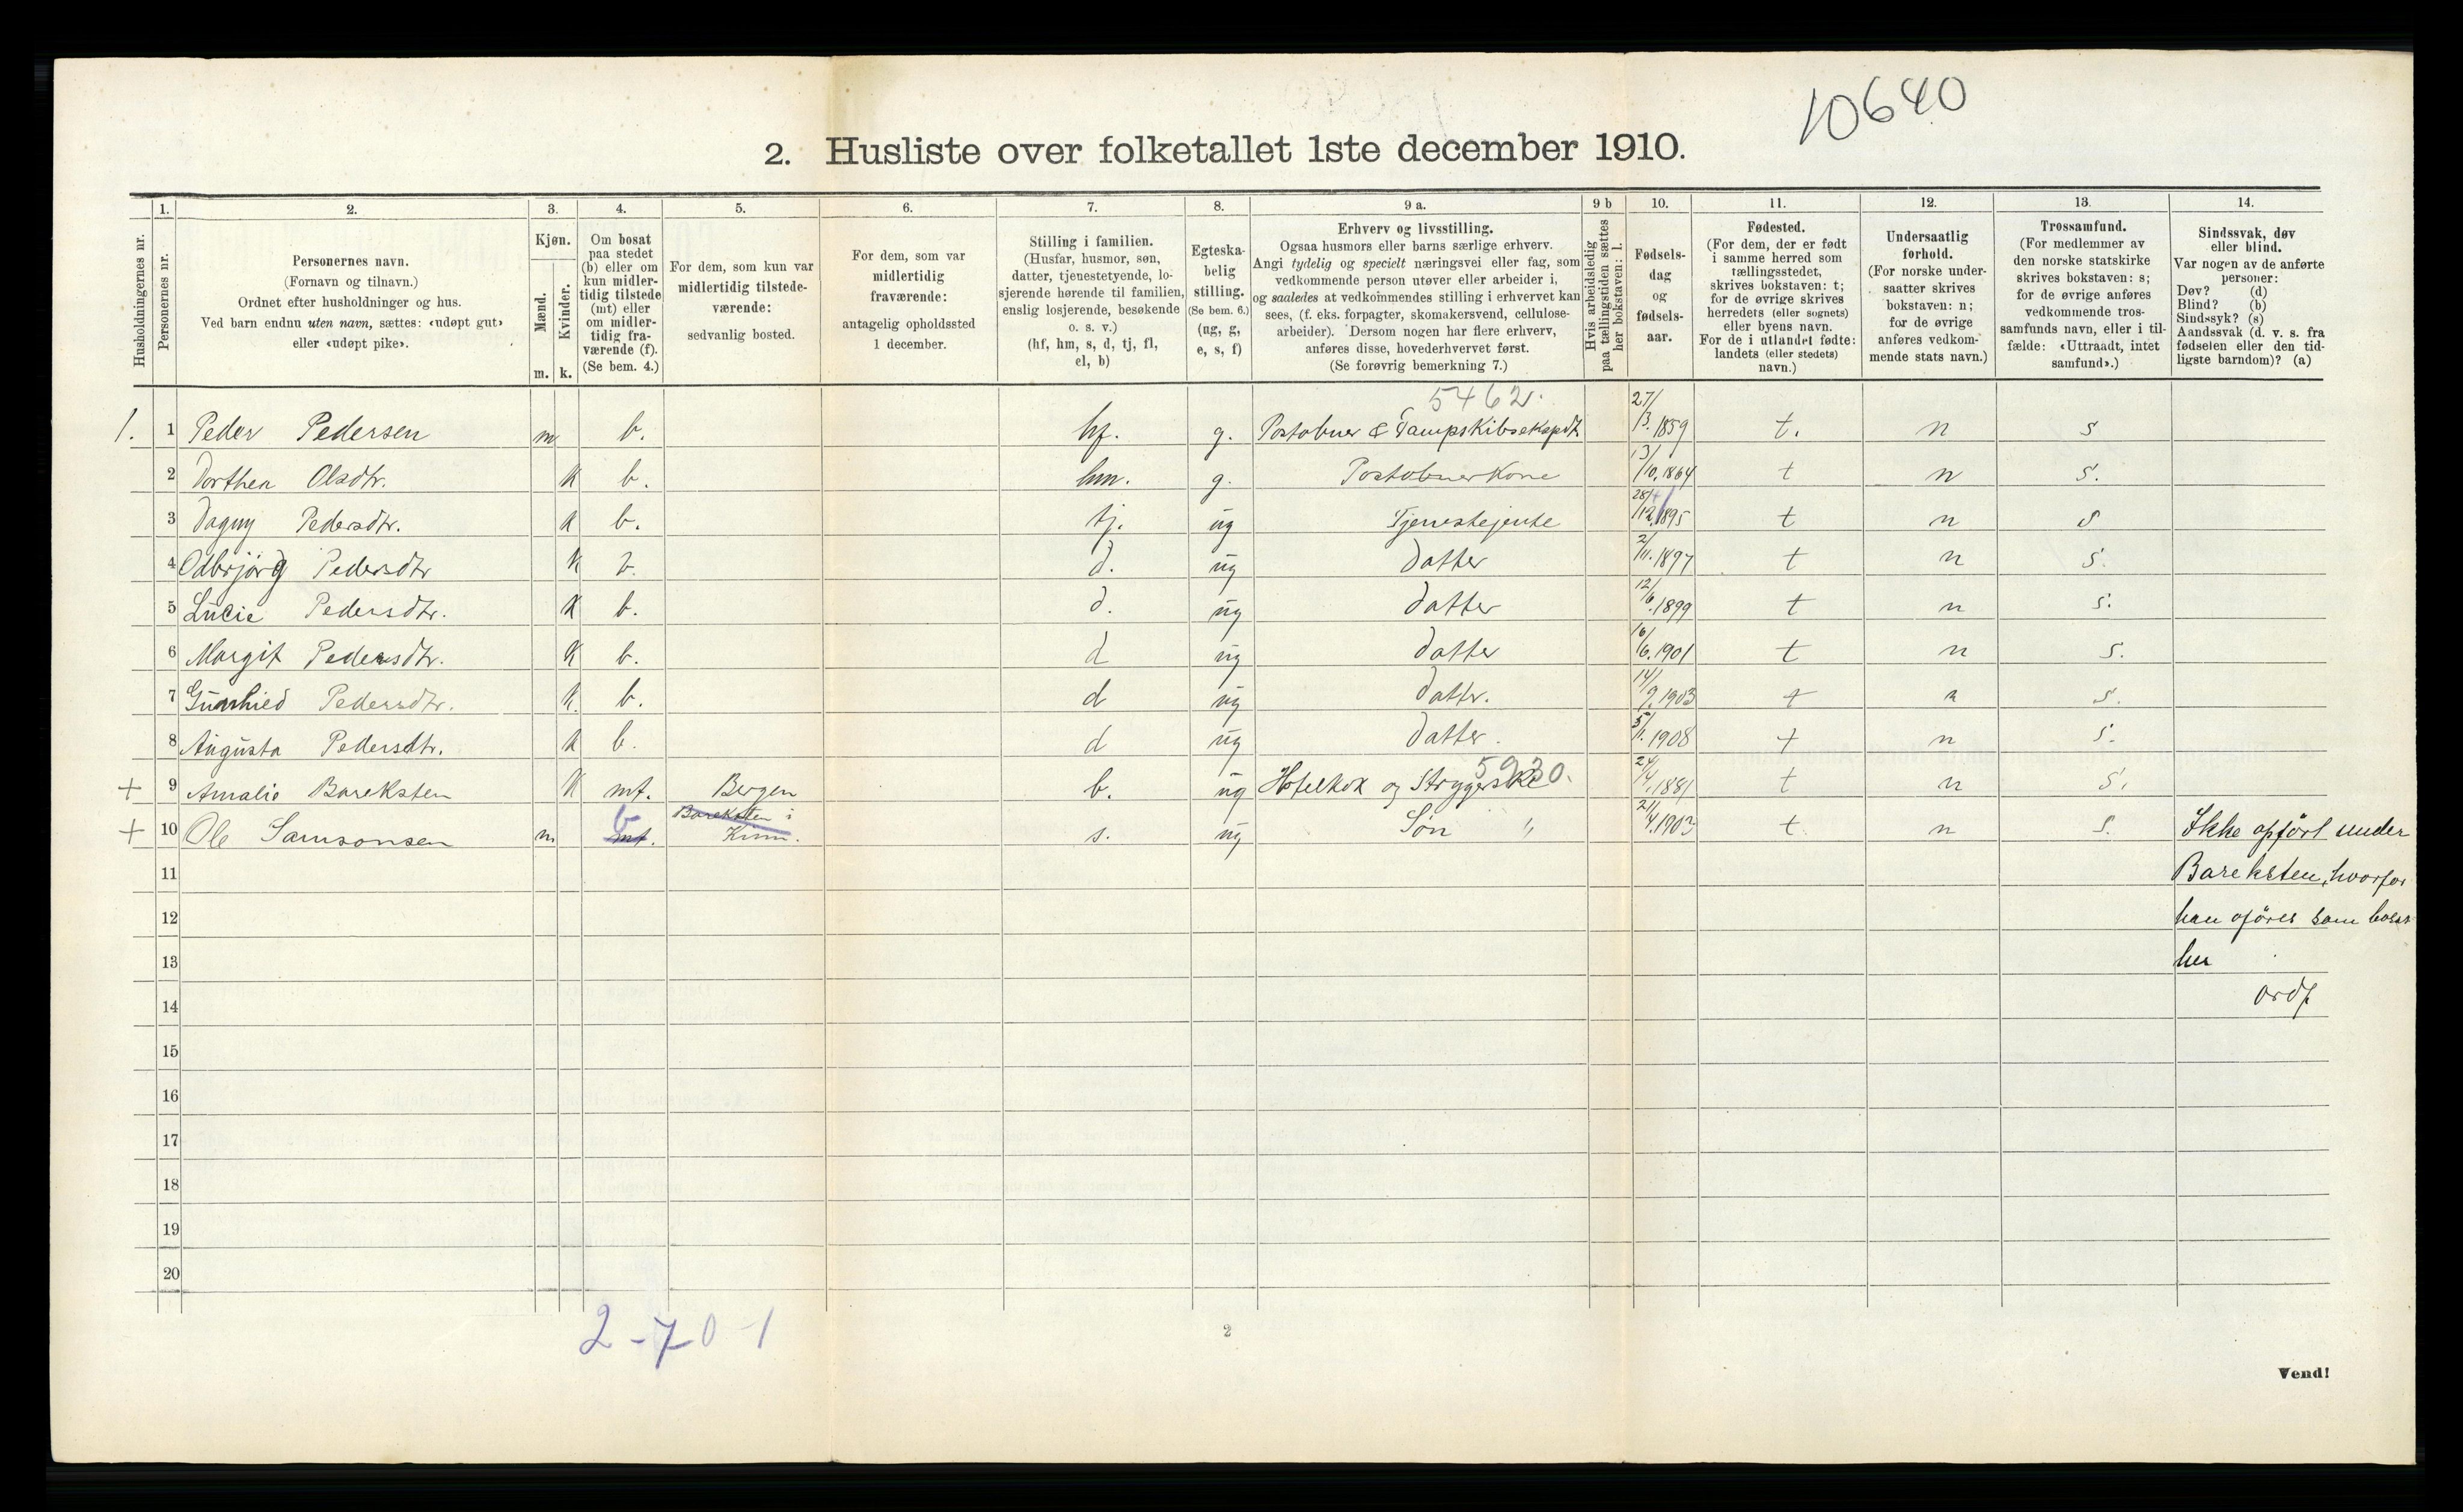 10640
2. Husliste over folketallet 1ste december 1910.
Husholdningernes nr.
1.
Personernes nr.
2.
Personernes navn.
(Fornavn og tilnavn.)
Ordnet efter husholdninger og hus.
Ved barn endnu uten navn, sættes: «udøpt gut»
eller «udøpt pike».
3.
Kjøn.
Mænd.
Kvinder.
m. k.
4.
Om bosat
paa stedet
(b) eller om
kun midler-
tidig tilstede
(mt) eller
om midler-
tidig fra-
værende (f).
(Se bem. 4.)
5.
For dem, som kun var
midlertidig tilstede-
værende:
sedvanlig bosted.
6.
For dem, som var
midlertidig
fraværende:
antagelig opholdssted
1 december.
7.
Stilling i familien.
(Husfar, husmor, søn,
datter, tjenestetyende, lo-
sjerende hørende til familien,
enslig losjerende, besøkende
o. s. v.)
(hf, hm, s, d, tj, fl,
el, b)
8.
Egteska-
belig
stilling.
(Se bem. 6.)
(ug, g,
e, s, f)
9 a.
Erhverv og livsstilling.
Ogsaa husmors eller barns særlige erhverv.
Angi tydelig og specielt næringsvei eller fag, som
vedkommende person utøver eller arbeider i,
og saaledes at vedkommendes stilling i erhvervet kan
sees, (f. eks. forpagter, skomakersvend, cellulose-
arbeider). Dersom nogen har flere erhverv,
anføres disse, hovederhvervet først.
(Se forøvrig bemerkning 7.)
9 b
Hvis arbeidsledig
paa tællingstiden sættes
her bokstaven: l.
10.
Fødsels-
dag
og
fødsels-
aar.
11.
Fødested.
(For dem, der er født
i samme herred som
tællingsstedet,
skrives bokstaven: t;
for de øvrige skrives
herredets (eller sognets)
eller byens navn.
For de i utlandet fødte:
landets (eller stedets)
navn.)
12.
Undersaatlig
forhold.
(For norske under-
saatter skrives
bokstaven: n;
for de øvrige
anføres vedkom-
mende stats navn.)
13.
Trossamfund.
(For medlemmer av
den norske statskirke
skrives bokstaven: s;
for de øvrige anføres
vedkommende tros-
samfunds navn, eller i til-
fælde: «Uttraadt, intet
samfund».)
14.
Sindssvak, døv
eller blind.
Var nogen av de anførte
personer:
Døv? (d)
Blind? (b)
Sindssyk? (s)
Aandssvak (d. v. s. fra
fødselen eller den tid-
ligste barndom)? (a)
5462.
1. 1 Peder Pedersen m b. hf. g. 27/3. 1859 t. n s
2 Dorthea Olsdtr. k b. hm. g. Postobnerkone 13/10. 1864 t n s.
3 Dagny Pedersdtr. k b. tj. ug Tjenestejente 28/12 1895 t n s
4 Odbrjørg Pedersdtr k b. d. ug Datter 2/11. 1897 t n s.
5 Lucie Pedersdtr. k b. d. ug Datter 12/6. 1899 t n s.
6 Margit Pedersdtr. k b. d ug Datter 16/6. 1901 t n s.
7 Gunhied Pedersdtr. k. b. d ug Datter. 14/9. 1903 t n s.
8 Augusta Pedersdtr. k b. d ug Datter. 5/1. 1908 t n s.
5920.
+ 9 Amalie Bareksten k mt. Bergen b. ug Hotelkok og Strygerske 24/4. 1881 t n s.
+ 10 Ole Samsonsen m mt. b Bareksten i Kinn. s. ug Søn " 21/4. 1903 t n s. Ikke opført under
11 Bareksten, hvorfor
12 han oføres som bosat
13 her
14 ordf
15
16
17
18
19
20
2-7 0-1
2
Vend!